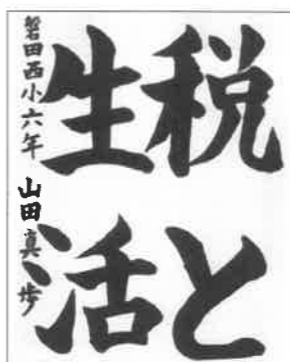 税と
生活
磐田西小六年 山田真歩